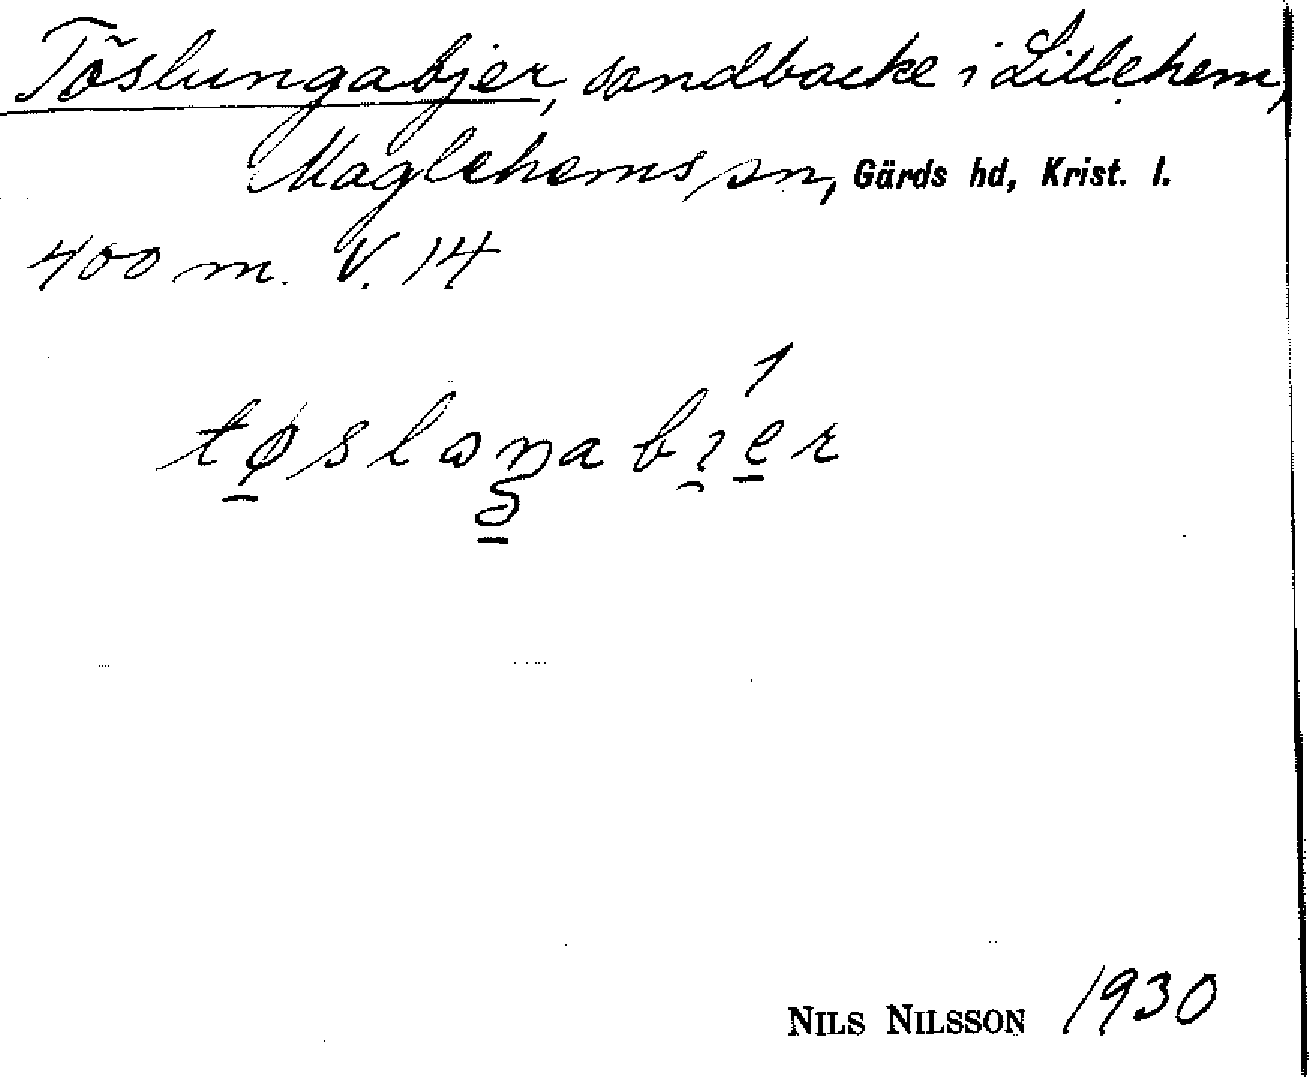 Töslungabjer, sandbacke i Lillehem,
Maglehems sn, Gärds hd, Krist. l.
400 m. V. 14
tøslaŋabɪ̯er
NILS NILSSON 1930